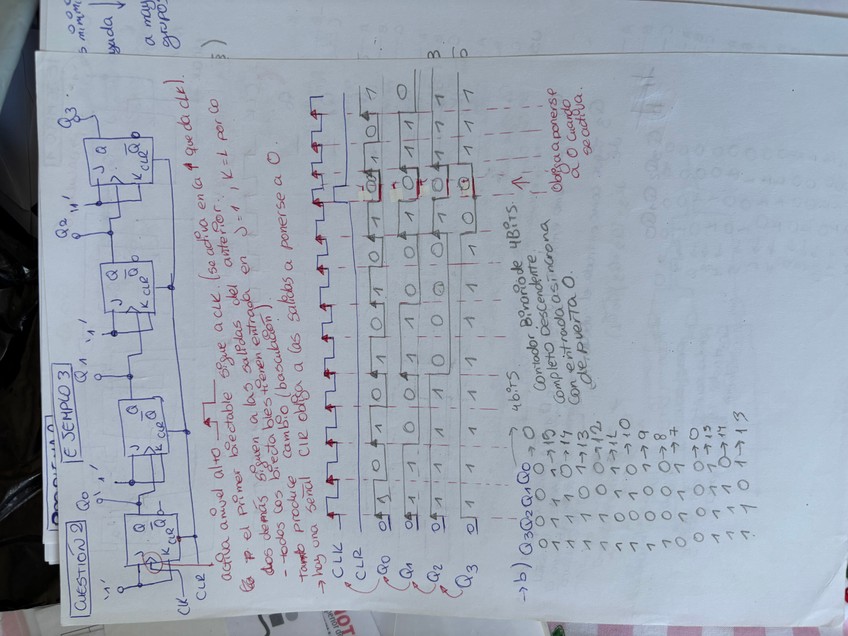 CUESTIÓN 2 EJEMPLO 3
'1' Q0 '1' Q1 '1' Q2 '1' Q3
J Q J Q J Q J Q
K CLR Q̅0 K CLR Q̅0 K CLR Q̅0 K CLR Q̅0
CLK
CLR
activa a nivel alto
el primer biestable sigue a CLK. (se activa en la ↑ que da CLK).
los demás siguen a las salidas del anterior.
- todos los biestables tienen entrada en J=1, K=1 por lo
tanto produce cambio (basculación)
→ hay una señal CLR obliga a las salidas a ponerse a 0.
CLK
CLR
Q0 0 1 0 1 0 1 0 1 0 1 0 0 1 0 1
Q1 0 1 1 0 0 1 1 0 0 1 1 0 1 1 0
Q2 0 1 1 1 1 0 0 0 0 1 1 0 1 1 1
Q3 0 1 1 1 1 1 1 1 1 0 0 0 1 1 1
→ b) Q3 Q2 Q1 Q0 → 4 bits
0 0 0 0 → 0
1 1 1 1 → 15
1 1 1 0 → 14
1 1 0 1 → 13
1 1 0 0 → 12
1 0 1 1 → 11
1 0 1 0 → 10
1 0 0 1 → 9
1 0 0 0 → 8
0 1 1 1 → 7
0 0 0 0 → 0
1 1 1 1 → 15
1 1 1 0 → 14
1 1 0 1 → 13
Contador Binario de 4 BITS.
completo Descendente
con entrada asíncrona
de puerta 0.
obliga a ponerse
a 0 cuando
se activa.